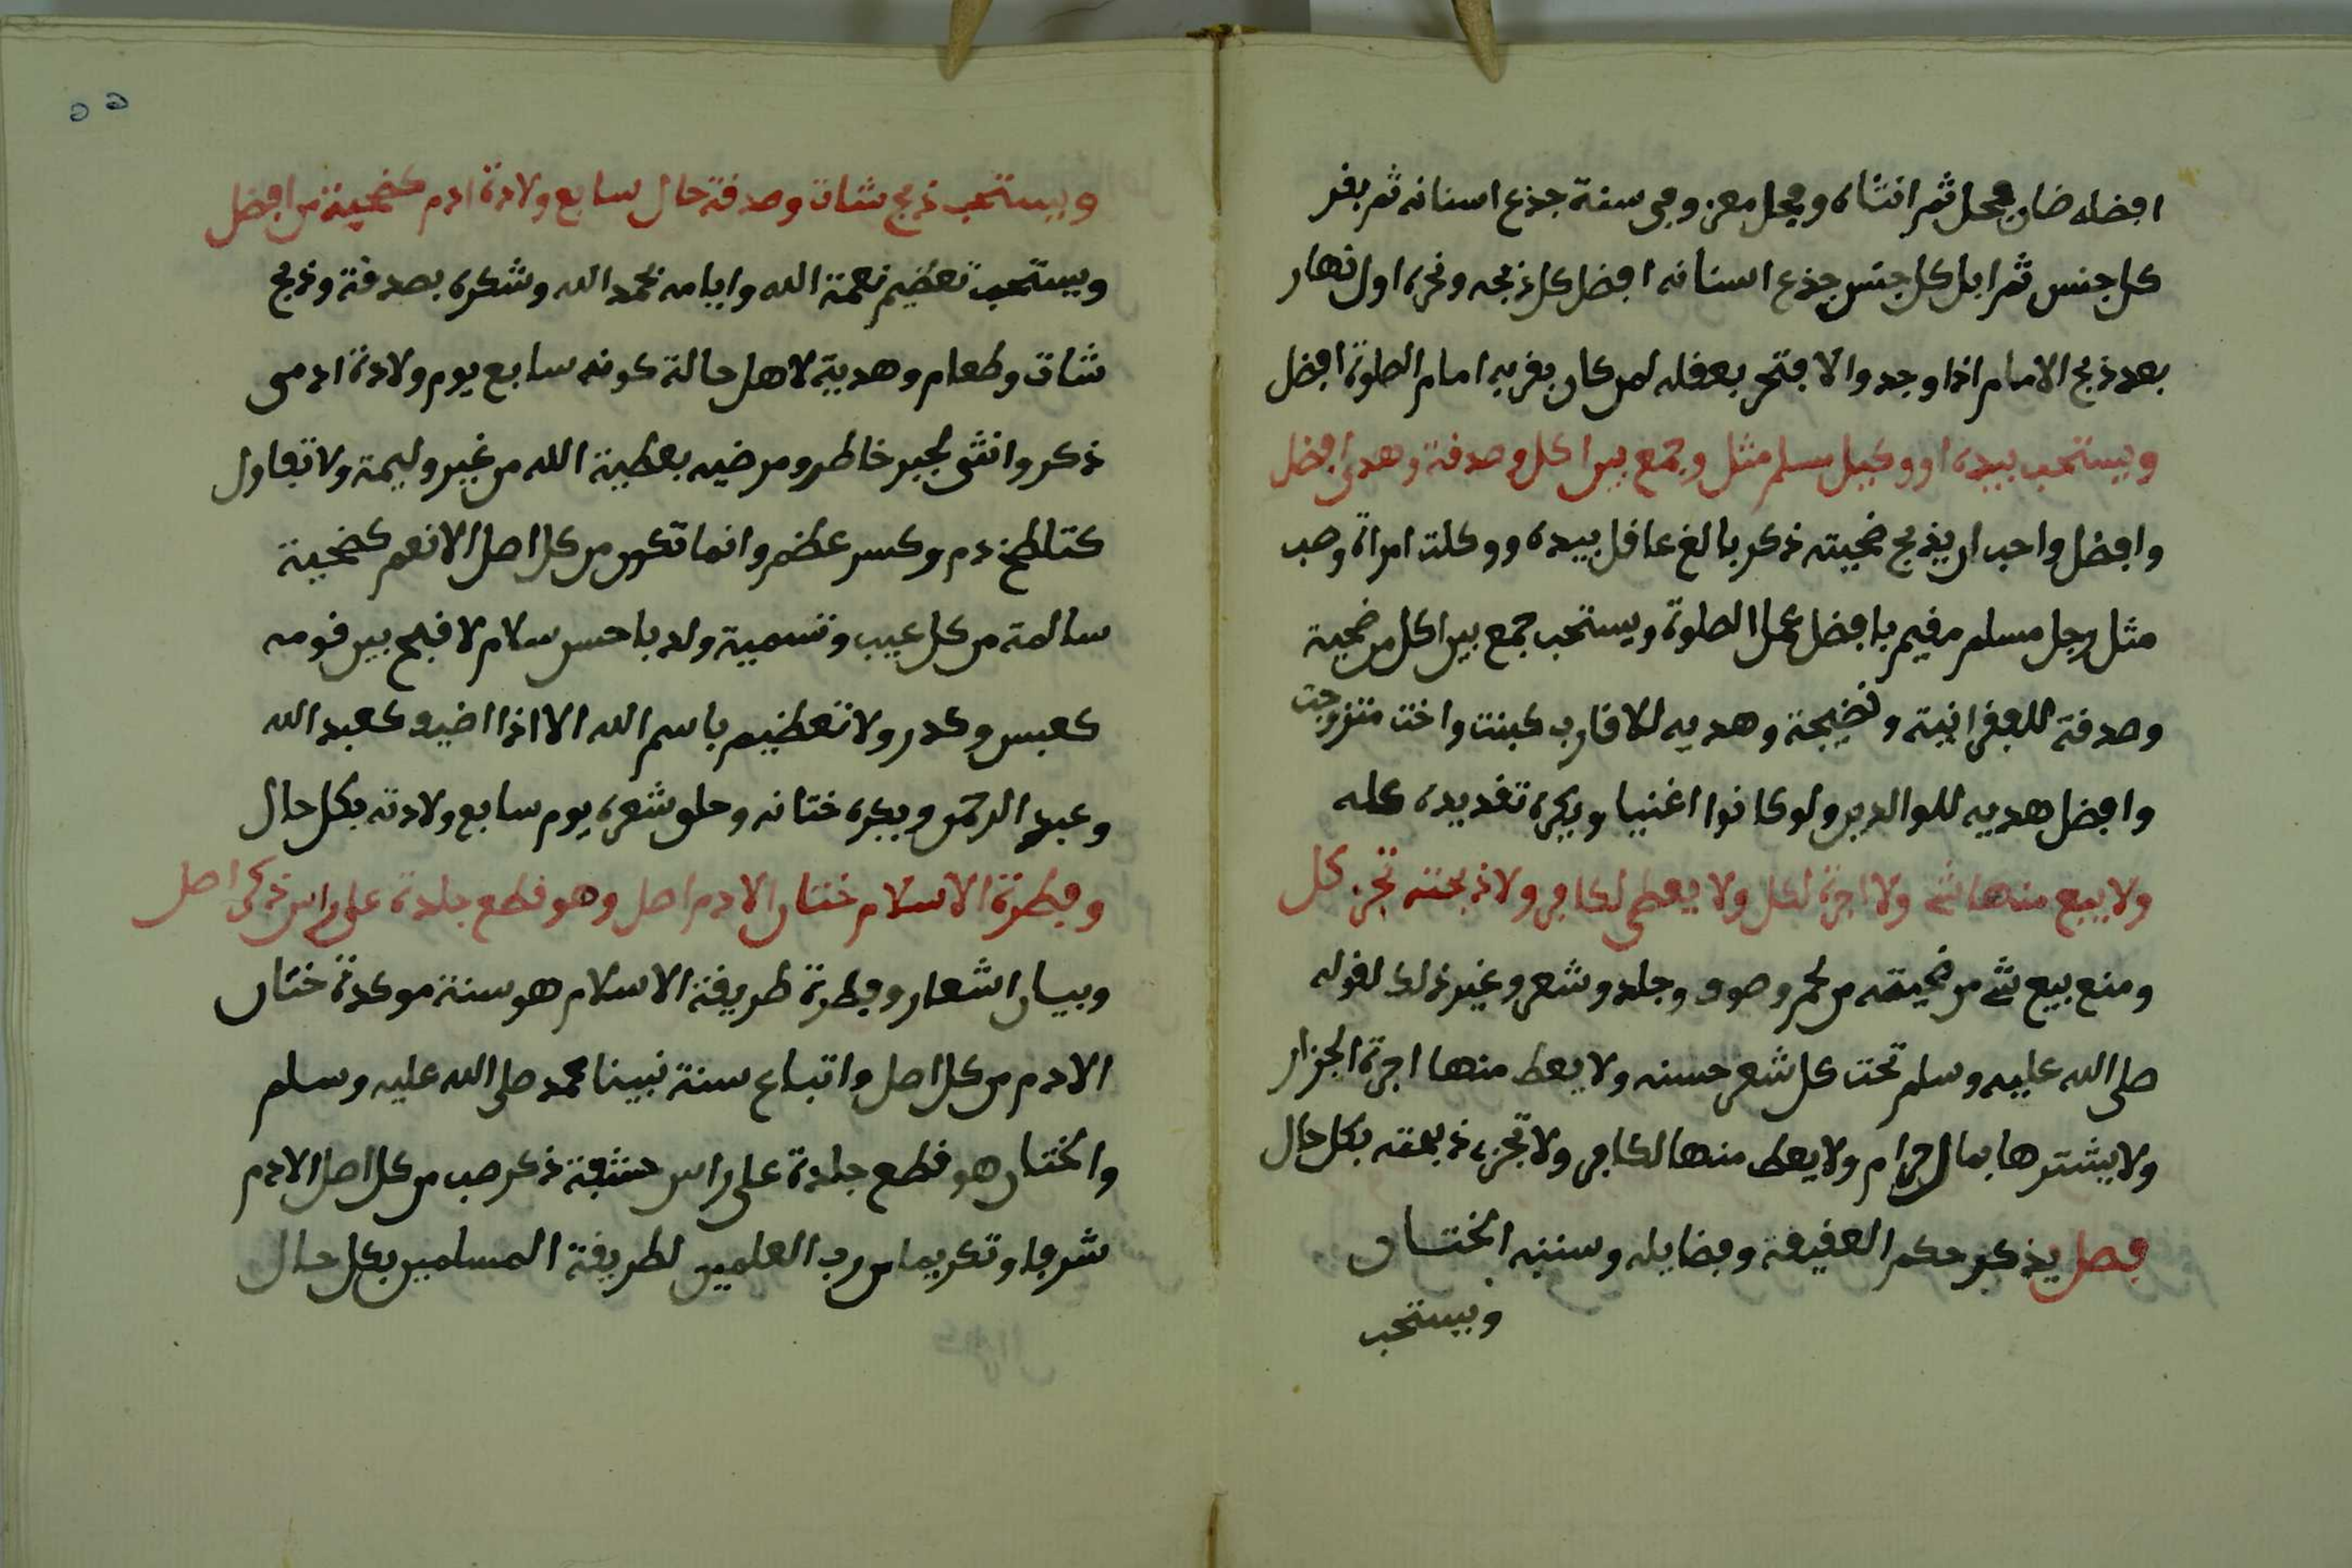 افضله ضان فحل ثم انثاه وفحل معز وفي سنة جذع اسنانه ثم بقر
كل جنس ثم ابل كل جنس جذع اسنانه افضل كل ذبحه ونحره اول نهار
بعد ذبح الامام اذا وجد والا فتحر بعقله لمن كان بقربه امام الصلوة افضل
ويستحب بيده او وكيل مسلم مثل وجمع بين اكل وصدقة وهدى افضل
وافضل واحب ان يذبح ضحيته ذكر بالغ عاقل بيده ووكلت امراة وصب
مثل رجل مسلم مقيم بافضل عمل الصلوة ويستحب جمع بين اكل من ضحية
وصدقة للعفرانية وهديه للاقارب كبنت واخت متزوجت
وافضل هديه للوالدين ولو كانوا اغنيا ويكره تقديده كله
ولا يبع منها شي ولا اجرة لكل ولا يعطى لكافر ولا ذبحته تجز كل
ومنع بيع شي من ضحيته من لحم وصوف وجلد وشعر وغير ذلك لقوله
صلى الله عليه وسلم تحت كل شعر حسنه ولا يعط منها اجرة الجزار
ولا يشترها بمال حرام ولا يعط منها لكافر ولا تجزء ذبحته بكل حال
فصل يذكر حكم العقيقة وفضايله وسننه الختان
ويستحب
٥٥
ويستحب ذبح شات وصدقة حال سابع ولادة ادم كضحية من افضل
ويستحب تعظيم نعمة الله وايامه بحمد الله وشكره بصدقة وذبح
شات وطعام وهدية لاهل حالة كونه سابع يوم ولادة ادمى
ذكر وانثى لجبر خاطر ومرضيه بعطية الله من غير وليمة ولا تفاول
كتلطخ دم وكسر عظم وانما تكون من كل اصل الانعم كضحية
سالمة من كل عيب وتسمية ولد باحسن سلام لا قبح بين قومه
كعبس وكدر ولا تعظيم باسم الله الا اذا اضيف كعبد الله
وعبد الرحمن ويكره ختانه وحلق شعره يوم سابع ولادته بكل حال
وفطرة الاسلام ختان الادم اصل وهو قطع جلدة على راس ذكر اصل
وبيان اشعار وفطرة طريقة الاسلام هو سنة موكدة ختان
الادم من كل اصل واتباع سنة نبينا محمد صلى الله عليه وسلم
والختان هو قطع جلدة على راس حشفة ذكر صب من كل اصل الادم
شرفا وتكريما من رب العلمين لطريقة المسلمين بكل حال